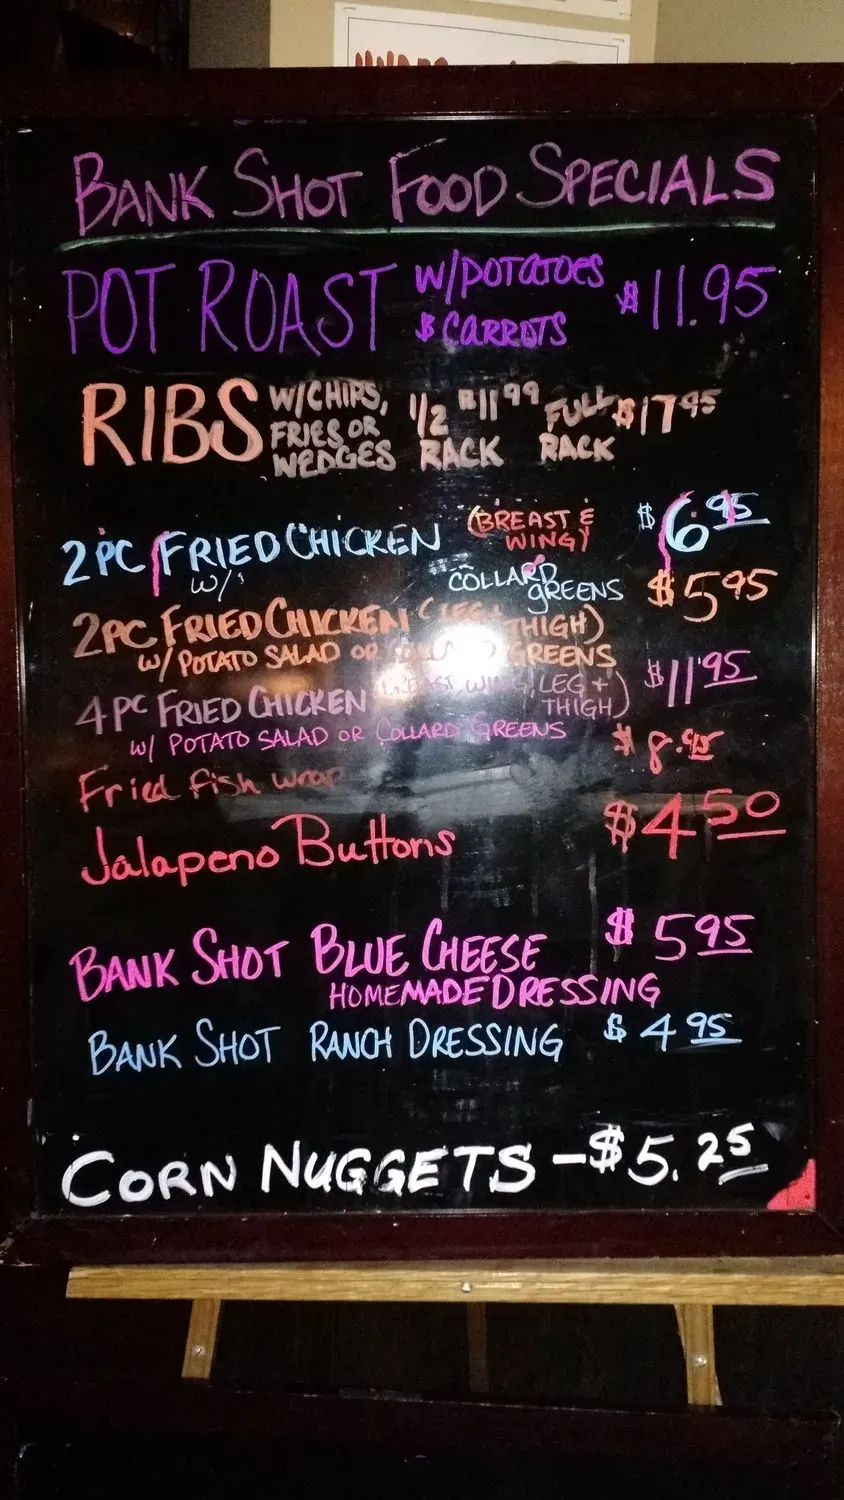 BANK SHOT FOOD SPECIALS
POT ROAST W/POTATOES & CARROTS $11.95
RIBS W/CHIPS, FRIES OR WEDGES 1/2 RACK $11.99 FULL RACK $17.95
2PC FRIED CHICKEN (BREAST & WING) $6.95
W/ COLLARD GREENS
2PC FRIED CHICKEN (LEG + THIGH) $5.95
W/ POTATO SALAD OR GREENS
4PC FRIED CHICKEN (BREAST, WING, LEG + THIGH) $11.95
W/ POTATO SALAD OR COLLARD GREENS
Fried fish wrap $8.95
Jalapeno Buttons $4.50
BANK SHOT BLUE CHEESE $5.95
HOMEMADE DRESSING
BANK SHOT RANCH DRESSING $4.95
CORN NUGGETS - $5.25